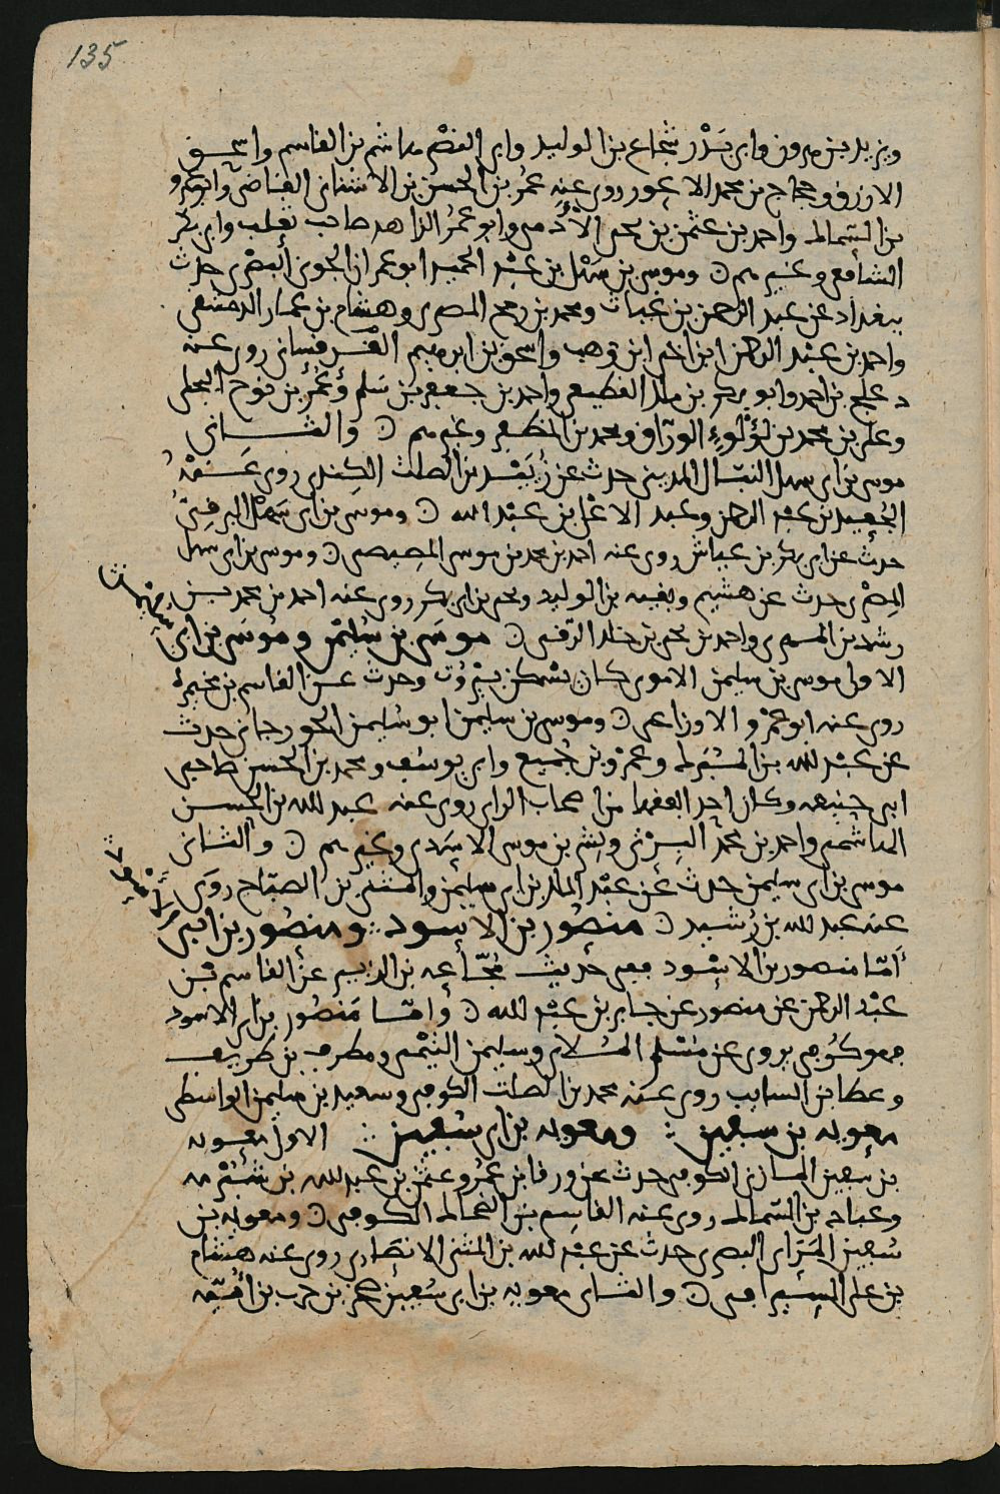 135
ويزيد بن هرون وابى بدر شجاع بن الوليد وابى النضر هاشم بن القاسم واسحق
الازرق وحجاج بن محمد الاعور روى عنه عمر بن الحسن بن الاشناني القاضي وابو عمرو
بن السماك واحمد بن عثمن بن يحيى الأدمي وابو عمر الزاهد صاحب ثعلب وابو بكر
الشافعي وغيرهم وموسى بن سهل بن عبد الحميد ابو عمران الجوني البصري حدث
ببغداد عن عبد الرحمن بن عياث ومحمد بن رمح المصري وهشام بن عمار الدمشقي
واحمد بن عبد الرحمن ابن اخي ابن وهب واسحق بن ابرهيم القرقساني روى عنه
دعلج بن احمد وابو بكر بن ملك القطيعي واحمد بن جعفر بن سلم وعمر بن نوح البجلي
وعلي بن محمد بن لؤلؤ الوراق ومحمد بن المظفر وغيرهم والثاني
موسى بن ابي سهل النبال المديني حدث عن زبيد بن الصلت الكندي روى عنه
الجعيد بن عبد الرحمن وعبد الاعلى بن عبد الله وموسى بن ابي سهل البرقي
حدث عن ابي بكر بن عياش روى عنه احمد بن محمد بن موسى المصيصي وموسى بن ابي سهل
المصري حدث عن هشيم وبقية بن الوليد ويحيى بن ابي بكر روى عنه احمد بن محمد بن
رشدين المصري واحمد بن يحيى بن خالد الرقي موسى بن سليمن وموسى بن ابي سليمن
الاول موسى بن سليمن الاموي كان يسكن بيروت وحدث عن القاسم بن مخيمرة
روى عنه ابو عمرو الاوزاعي وموسى بن سليمن ابو سليمن الجوزجاني حدث
عن عبد الله بن المبرك وعمرو بن جميع وابي يوسف ومحمد بن الحسن صاحبي
ابي حنيفه وكان احد الفقها من اصحاب الراي روى عنه عبد الله بن الحسن
الهاشمي واحمد بن محمد البرتي وبشر بن موسى الاسدي وغيرهم والثاني
موسى بن ابي سليمن حدث عن عبد الملك بن ابي سليمن والمثنى بن الصباح روى
عنه عبد الله بن رشيد منصور بن الاسود ومنصور بن ابي الاسود
أما منصور بن الاسود ففي حديث مجاعه بن الزبير عن القاسم بن
عبد الرحمن عن منصور عن جابر بن عبد الله وأما منصور بن ابي الاسود
فهو كوفي يروى عن مسلم الملائي وسليمن التيمي ومطرف بن طريف
وعطا بن السايب روى عنه محمد بن الصلت الكوفي وسعيد بن سليمن الواسطي
معويه بن سفين ومعويه بن ابي سفين الاول معويه
بن سفين المازني الكوفي حدث عن ورقا بن عمر وعثمن بن عبد الله بن شبرمه
وعباد بن السماك روى عنه القاسم بن الضحاك الكوفي ومعويه بن
سفين البصري حدث عن عبد الله بن المثنى الانصاري روى عنه هشام
بن علي السيرافي والثاني معويه بن ابي سفين صخر بن حرب بن أميه